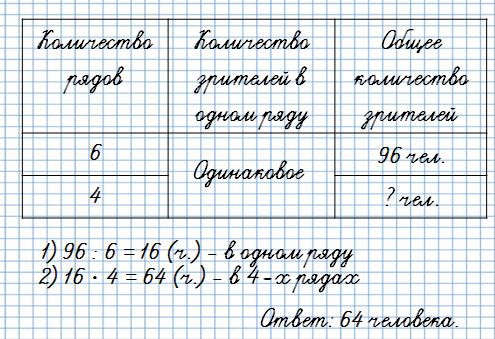 Количество рядов
Количество зрителей в одном ряду
Общее количество зрителей
6
Одинаковое
96 чел.
4
? чел.
1) 96 : 6 = 16 (ч.) – в одном ряду
2) 16 · 4 = 64 (ч.) – в 4-х рядах
Ответ: 64 человека.